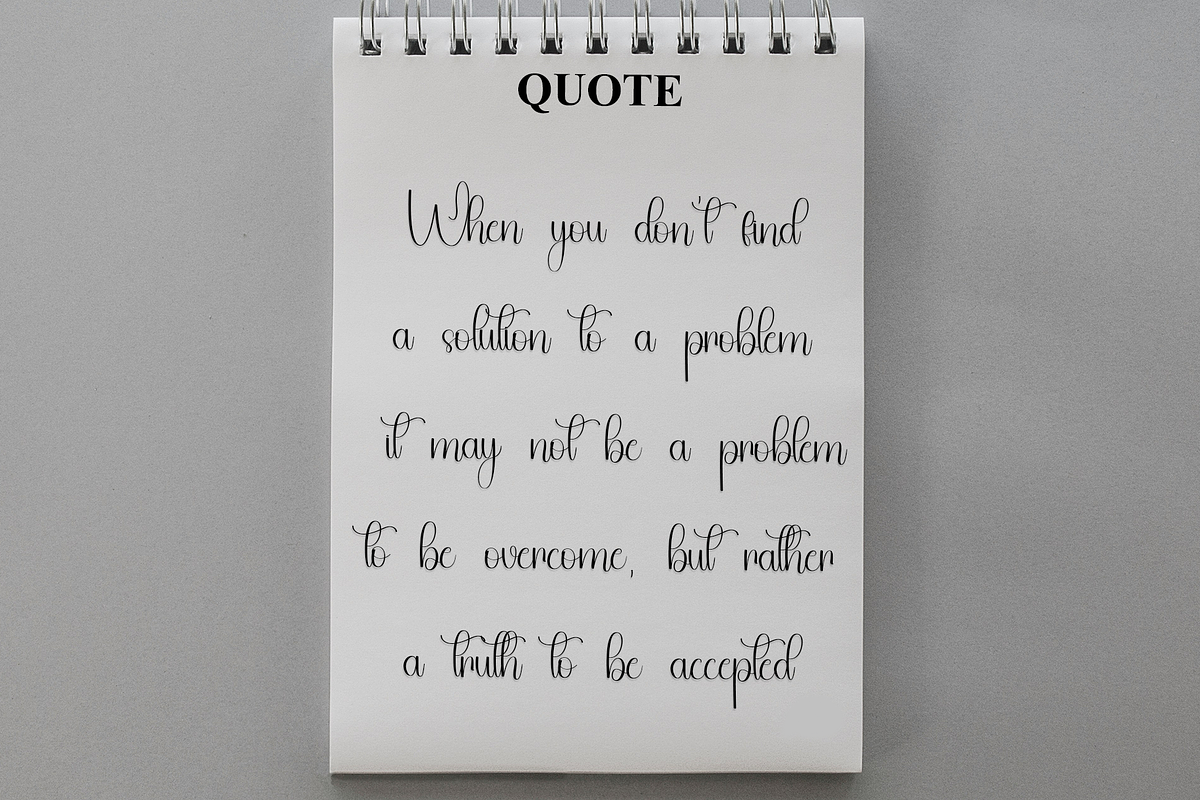 QUOTE
When you don't find
a solution to a problem
it may not be a problem
to be overcome, but rather
a truth to be accepted